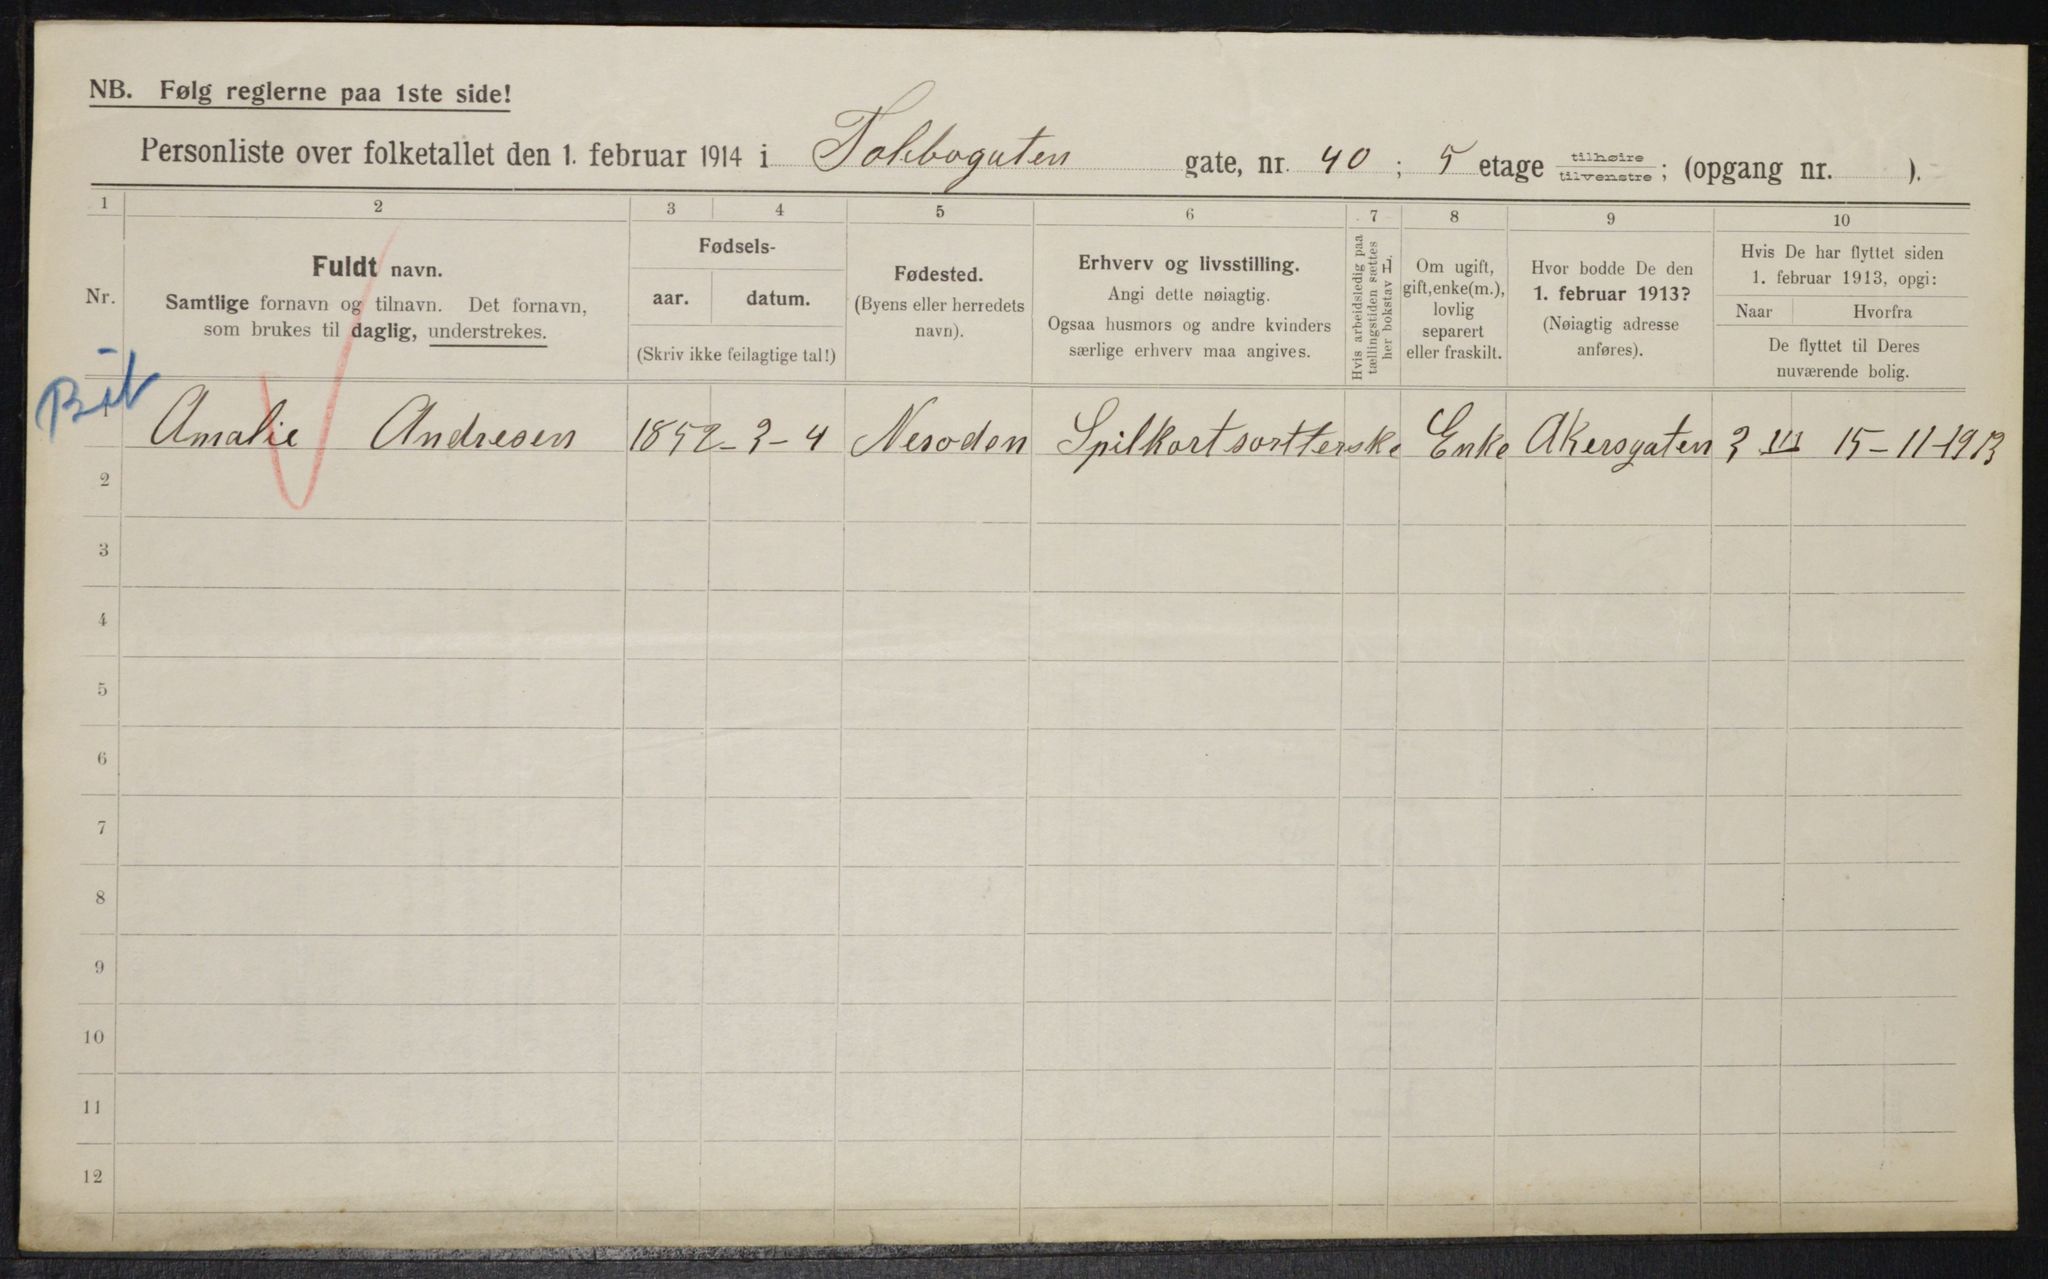 NB. Følg reglerne paa 1ste side!
Personliste over folketallet den 1. februar 1914 i Tolbogaten gate, nr. 40 ; 5 etage tilhøire tilvenstre ; (opgang nr. ).
1 2 3 4 5 6 7 8 9 10
Nr.
Fuldt navn.
Samtlige fornavn og tilnavn. Det fornavn,
som brukes til daglig, understrekes.
Fødsels-
aar. datum.
(Skriv ikke feilagtige tal!)
Fødested.
(Byens eller herredets
navn).
Erhverv og livsstilling.
Angi dette nøiagtig.
Ogsaa husmors og andre kvinders
særlige erhverv maa angives.
Hvis arbeidsledig paa
tællingstiden sættes
her bokstav H.
Om ugift,
gift, enke(m.),
lovlig
separert
eller fraskilt.
Hvor bodde De den
1. februar 1913?
(Nøiagtig adresse
anføres).
Hvis De har flyttet siden
1. februar 1913, opgi:
Naar Hvorfra
De flyttet til Deres
nuværende bolig.
1 Amalie Andresen 1852-3-4 Nesodden Spilkortsortterske Enke Akersgaten 3 III 15-11-1913
2
3
4
5
6
7
8
9
10
11
12